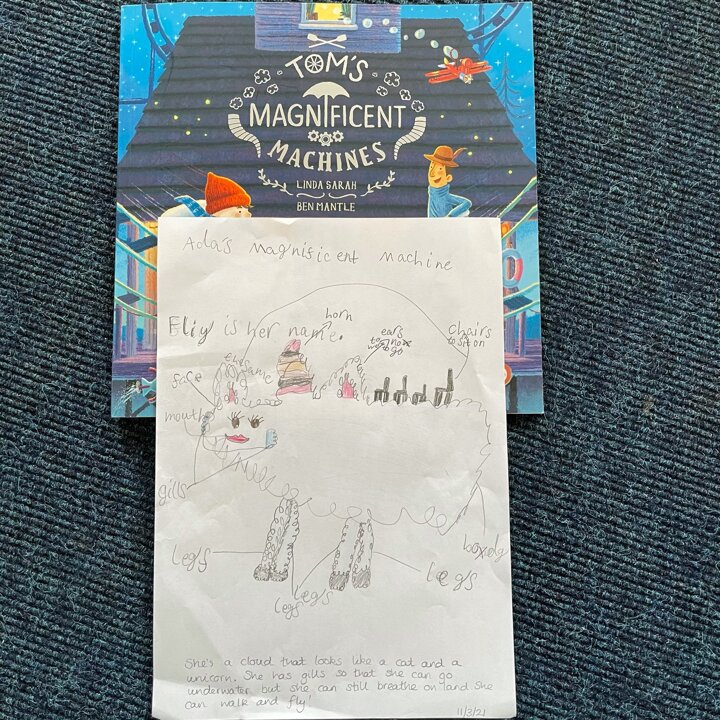 TOM'S
MAGNIFICENT
MACHINES
LINDA SARAH
BEN MANTLE
Ada's Magnificent Machine
Fliy is her name.
horn
ears
to
go
chairs
to sit on
face
mouth
gills
legs
legs
legs
legs
She's a cloud that looks like a cat and a
unicorn. She has gills so that she can go
underwater but she can still breathe on land. She
can walk and fly!
11/3/21